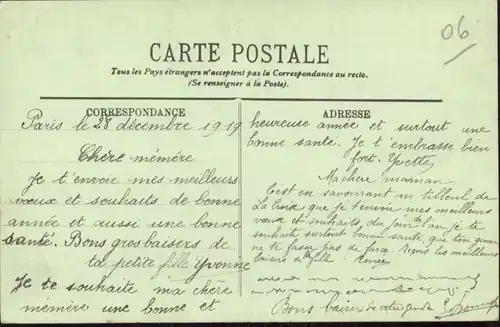 06
CARTE POSTALE
Tous les Pays étrangers n'acceptent pas la Correspondance au recto.
(Se renseigner à la Poste).
CORRESPONDANCE
Paris le 28 décembre 1919
Chère mémère
Je t'envoie mes meilleurs
vœux et souhaits de bonne
année et aussi une bonne
santé. Bons gros baisers de
ta petite fille Yvonne
Je te souhaite ma chère
mémère une bonne et
ADRESSE
heureuse année et surtout une
bonne santé. Je t'embrasse bien
fort. Yvette
Ma chère maman
C'est en savourant un tilleul de
La Croix que je t'envoie mes meilleurs
vœux et souhaits, du jour de l'an je te
souhaite surtout bonne santé, que ton
ne te fasse pas de farce. Reçois les meilleurs
baisers de ta fille. Renée
Bons baisers de votre gendre